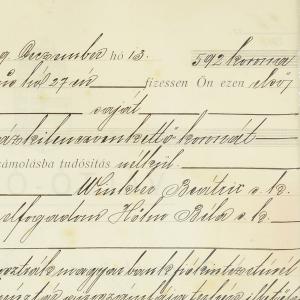 9 Deczember hó 13. 592 korona
hó 27 én fizessen Ön ezen első
saját
ázkilenczvenkettő koronát
számolásba tudósitás nélkül.
Winkler Beátrix s. k.
elfogadom Hohn Béla s. k.
osztrák magyar bank fiókintézeténél